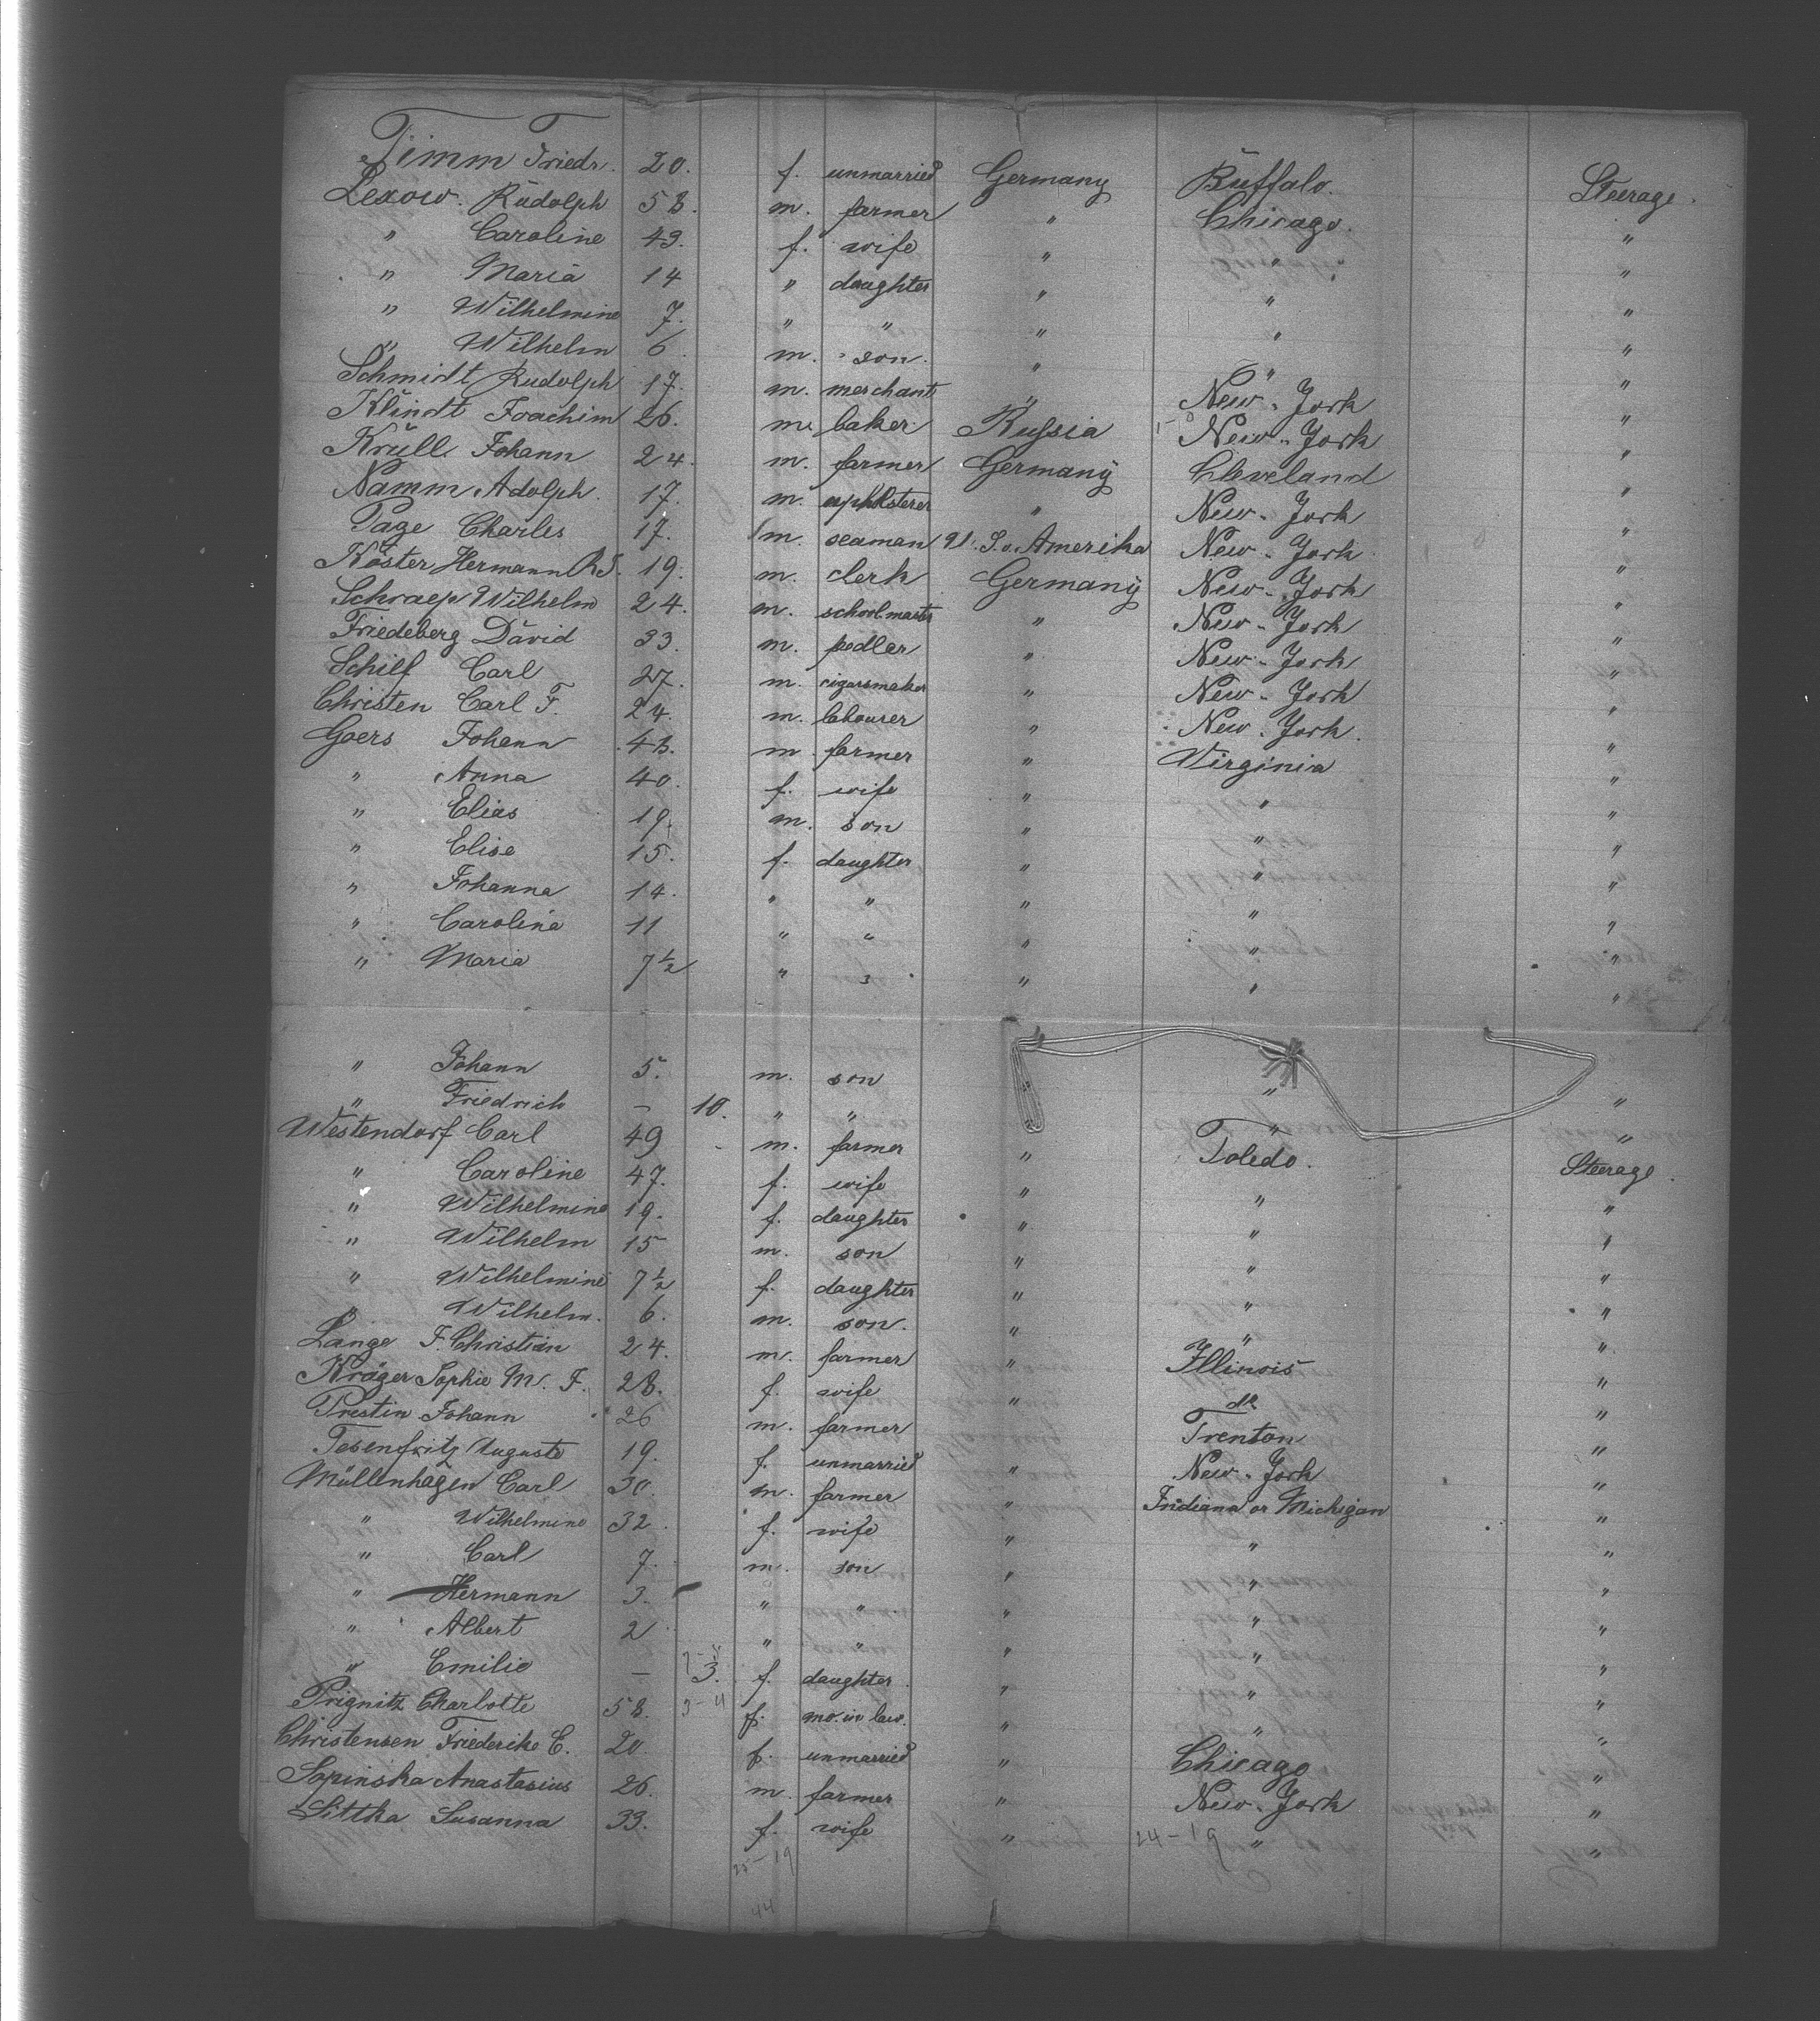 Timm Friedr. 20. f. unmarried Germany Buffalo. Steerage.
Lexow. Rudolph 58. m. farmer " Chicago. "
" Caroline 49. f. wife " " "
" Maria 14 " daughter " " "
" Wilhelmine 7. " " " " "
" Wilhelm 6 m. son. " " "
Schmidt Rudolph 17. m. merchant " New-York "
Klindt Joachim 26. m. baker Russia New-York "
Krüll Johann 24. m. farmer Germany Cleveland "
Namm Adolph. 17. m. upholsterer " New-York "
Page Charles 17. m. seaman Amerika New-York "
Köster Hermann 19. m. clerk Germany New-York "
Schraep Wilhelm 24. m. schoolmaster " New-York "
Friedeberg David 33. m. pedler " New-York "
Schilf Carl 27. m. cigarsmaker " New-York "
Christen Carl F. 24. m. labourer " New-York. "
Goers Johann 43. m. farmer " Virginia "
" Anna 40. f. wife " " "
" Elias 19. m. son " " "
" Elise 15. f. daughter " " "
" Johanna 14. " " " " "
" Caroline 11 " " " " "
" Maria 7½ " " " " "
" Johann 5. m. son " "
" Friedrich — 10. " " " "
Westendorf Carl 49 m. farmer " Toledo. Steerage.
" Caroline 47. f. wife " " "
" Wilhelmine 19. f. daughter " " "
" Wilhelm 15 m. son " " "
" Wilhelmine 7½ f. daughter " " "
" Wilhelm. 6. m. son. " " "
Lange F. Christian 24. m. farmer " Illinois "
Kröger Sophie M. F. 28. f. wife " do "
Prestin Johann 26 m. farmer Trenton "
Tesenfritz Auguste 19. f. unmarried " New-York "
Müllenhagen Carl 30. m. farmer " Indiana or Michigan "
" Wilhelmine 32. f. wife " " "
" Carl 7. m. son " " "
" Hermann 3. " " " " "
" Albert 2 " " " " "
" Emilie — 3. f. daughter " " "
Prignitz Charlotte 58. f. mo. in law. " " "
Christensen Friederike C. 20 f. unmarried " Chicago "
Sopinska Anastasius 26. m. farmer " New-York "
Sittka Susanna 33. f. wife " " "
24-19
44